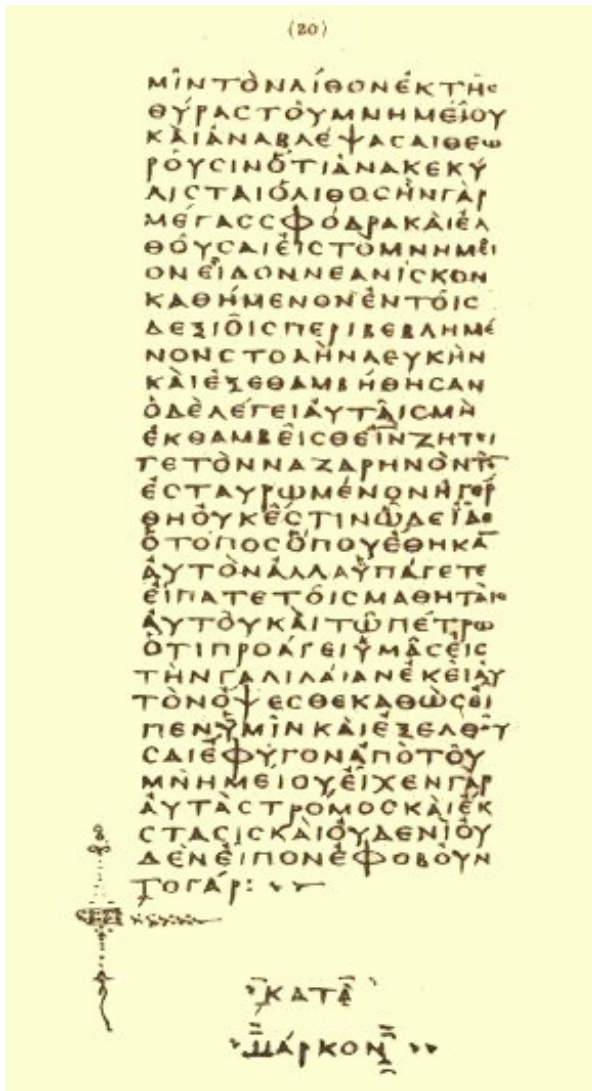 (20)
ΜΙΝΤΟΝΛΙΘΟΝΕΚΤΗϹ
ΘΥΡΑϹΤΟΥΜΝΗΜΕΙΟΥ
ΚΑΙΑΝΑΒΛΕΨΑϹΑΙΘΕΩ
ΡΟΥϹΙΝΟΤΙΑΝΑΚΕΚΥ
ΛΙϹΤΑΙΟΛΙΘΟϹΗΝΓΑΡ
ΜΕΓΑϹϹΦΟΔΡΑΚΑΙΕΛ
ΘΟΥϹΑΙΕΙϹΤΟΜΝΗΜΕΙ
ΟΝΕΙΔΟΝΝΕΑΝΙϹΚΟΝ
ΚΑΘΗΜΕΝΟΝΕΝΤΟΙϹ
ΔΕΞΙΟΙϹΠΕΡΙΒΕΒΛΗΜΕ
ΝΟΝϹΤΟΛΗΝΛΕΥΚΗΝ
ΚΑΙΕΞΕΘΑΜΒΗΘΗϹΑΝ
ΟΔΕΛΕΓΕΙΑΥΤΑΙϹΜΗ
ΕΚΘΑΜΒΕΙϹΘΕΙΝΖΗΤΕΙ
ΤΕΤΟΝΝΑΖΑΡΗΝΟΝΤΟ̅
ΕϹΤΑΥΡΩΜΕΝΟΝΗΓΕΡ
ΘΗΟΥΚΕϹΤΙΝΩΔΕΙΔΕ
ΟΤΟΠΟϹΟΠΟΥΕΘΗΚΑ̅
ΑΥΤΟΝΑΛΛΑΥΠΑΓΕΤΕ
ΕΙΠΑΤΕΤΟΙϹΜΑΘΗΤΑΙϹ
ΑΥΤΟΥΚΑΙΤΩΠΕΤΡΩ
ΟΤΙΠΡΟΑΓΕΙΥΜΑϹΕΙϹ
ΤΗΝΓΑΛΙΛΑΙΑΝΕΚΕΙΑΥ
ΤΟΝΟΨΕϹΘΕΚΑΘΩϹΕΙ
ΠΕΝΥΜΙΝΚΑΙΕΞΕΛΘΟΥ
ϹΑΙΕΦΥΓΟΝΑΠΟΤΟΥ
ΜΝΗΜΕΙΟΥΕΙΧΕΝΓΑΡ
ΑΥΤΑϹΤΡΟΜΟϹΚΑΙΕΚ
ϹΤΑϹΙϹΚΑΙΟΥΔΕΝΙΟΥ
ΔΕΝΕΙΠΟΝΕΦΟΒΟΥΝ
ΤΟΓΑΡ:
ΚΑΤΑ
ΜΑΡΚΟΝ